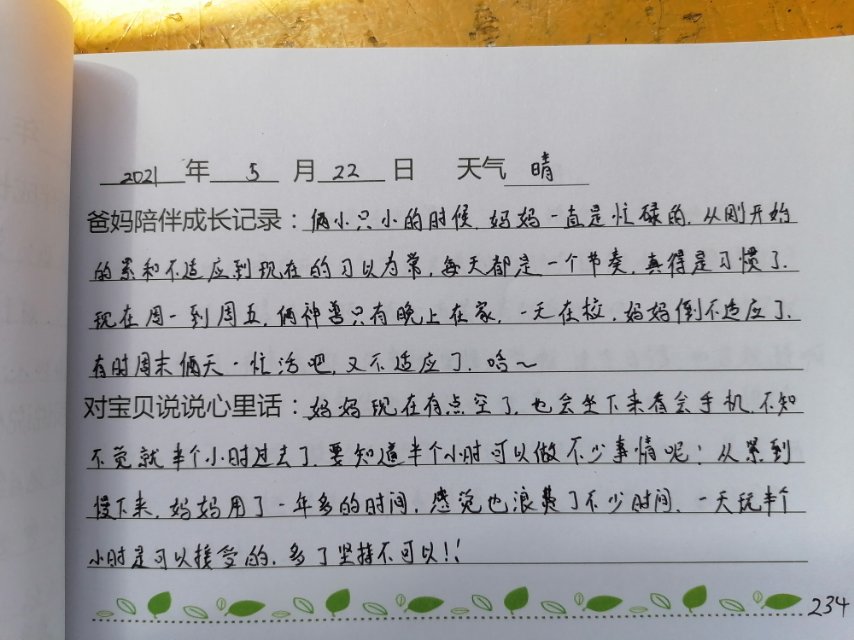 2021 年 5 月 22 日 天气 晴
爸妈陪伴成长记录：俩小只小的时候，妈妈一直是忙碌的，从刚开始
的累和不适应到现在的习以为常，每天都是一个节奏，真得是习惯了．
现在周一到周五，俩神兽只有晚上在家，一天在校，妈妈倒不适应了．
有时周末俩天一忙活吧，又不适应了．哈～
对宝贝说说心里话：妈妈现在有点空了，也会坐下来看会手机．不知
不觉就半个小时过去了．要知道半个小时可以做不少事情呢！从累到
慢下来，妈妈用了一年多的时间，感觉也浪费了不少时间．一天玩半个
小时是可以接受的，多了坚持不可以！！
234